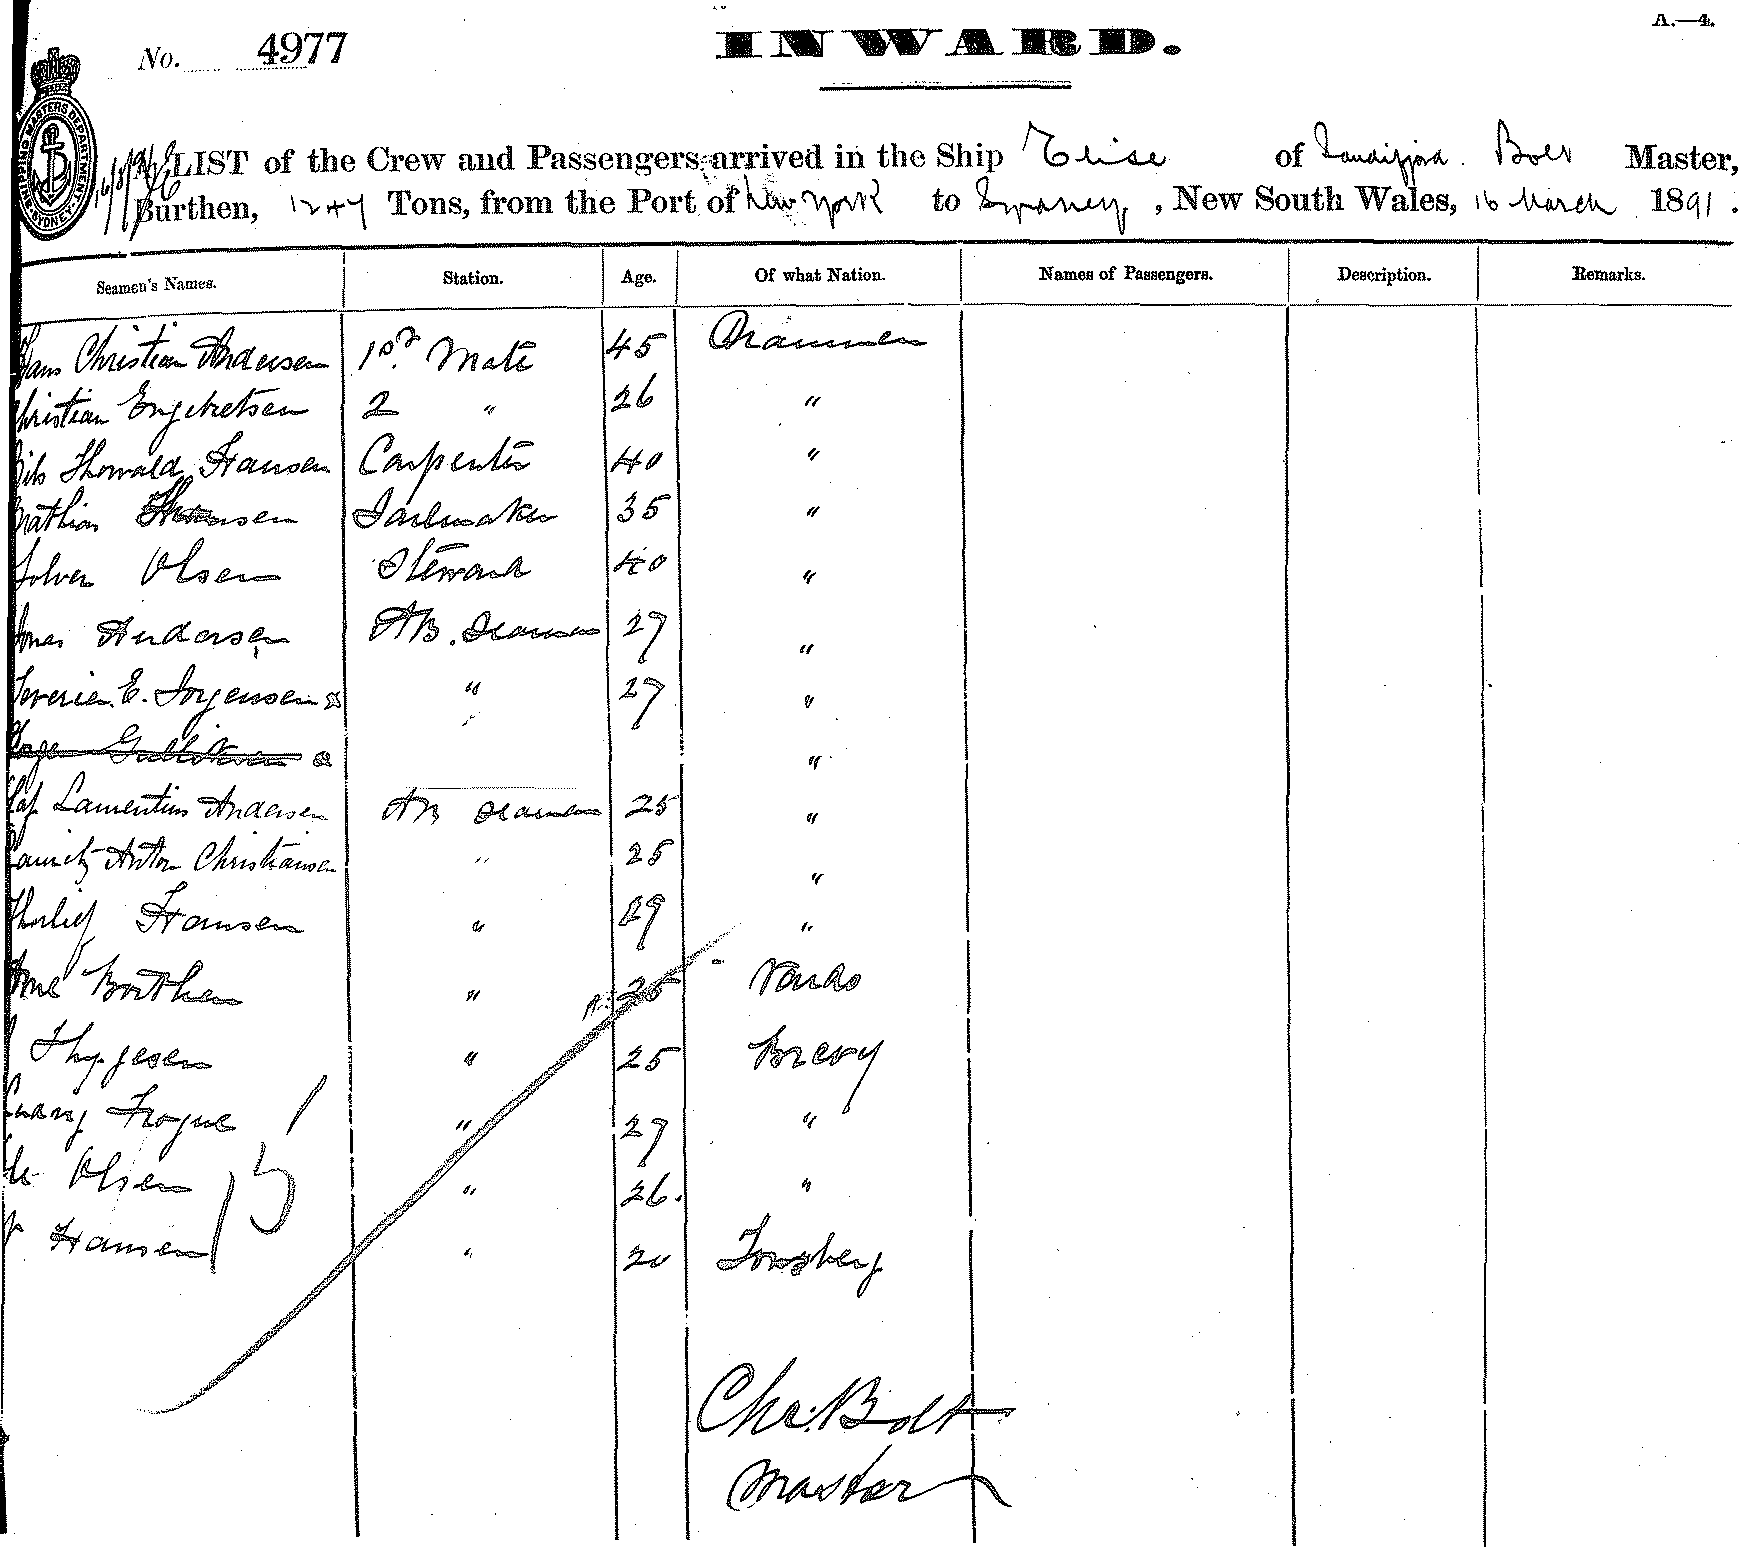 A.—4.
No. 4977 INWARD.
LIST of the Crew and Passengers arrived in the Ship Elise of Sandifjord. Bolt Master,
Burthen, 1247 Tons, from the Port of New York to Sydney, New South Wales, 16 March 1891.
Seamen's Names. Station. Age. Of what Nation. Names of Passengers. Description. Remarks.
Hans Christian Andersen 1st Mate 45 Drammen
Christian Engebretsen 2 " 26 "
Nils Thorvald Hansen Carpenter 40 "
Mathias Hansen Sailmaker 35 "
Solver Olsen Steward 40 "
Andersen AB. Seaman 27 "
Severin E. Jorgensen " 27 "
Gulliksen "
Olaf Laurentius Andersen AB Seaman 25 "
Lauritz Anton Christiansen " 25 "
Thorleif Hansen " 29 "
Borthen " 25 Vardo
Thygesen " 25 Brevig
Frogne " 27 "
Ole Olsen " 26. "
Hansen " 20 Tonsberg
Chr. Bolt
Master